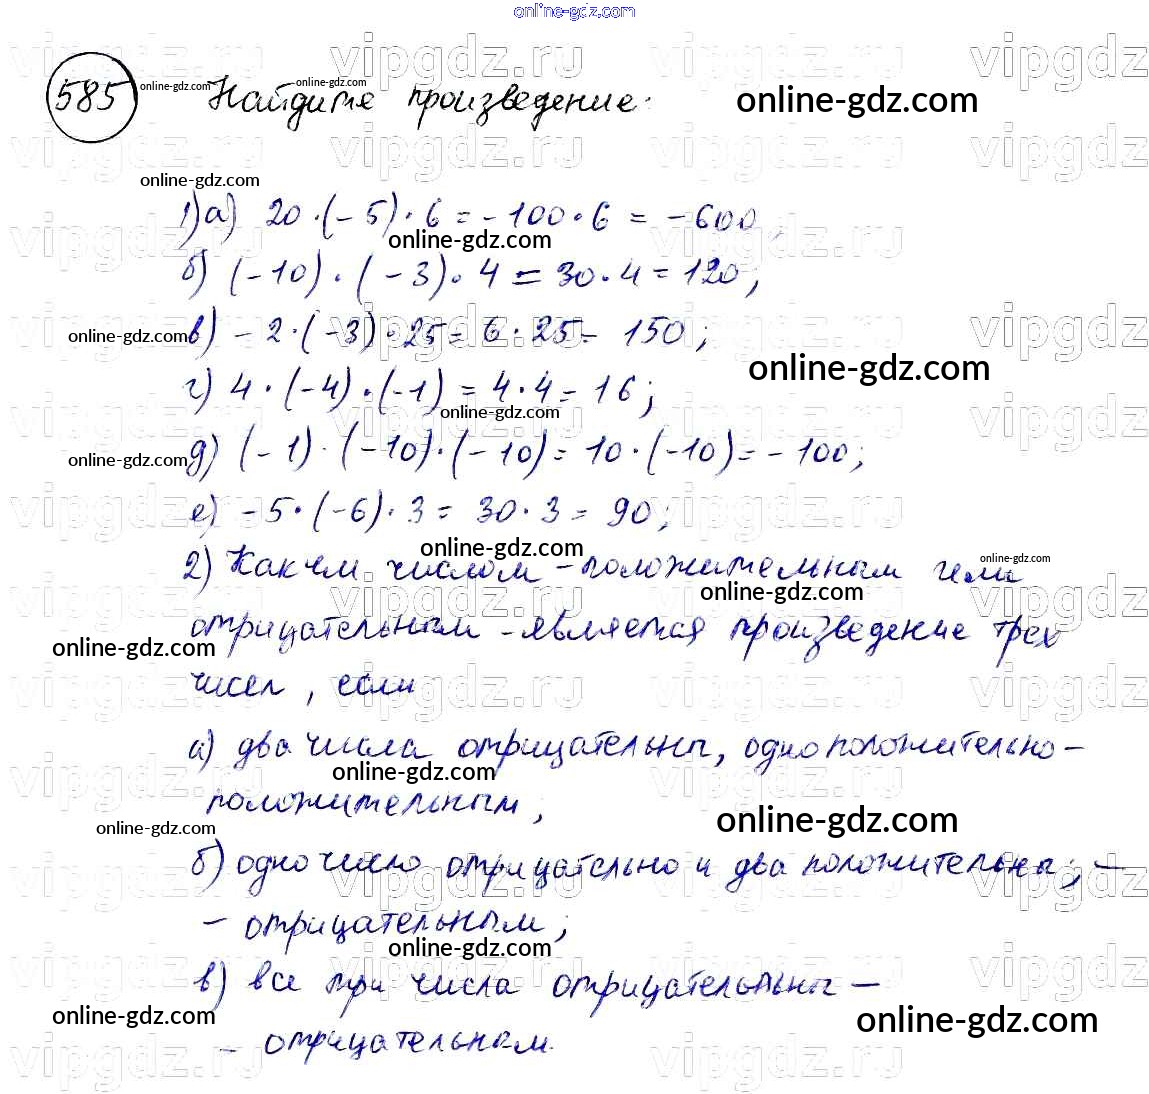 online-gdz.com
585 Найдите произведение:
1) а) 20 · (-5) · 6 = -100 · 6 = -600,
б) (-10) · (-3) · 4 = 30 · 4 = 120;
в) -2 · (-3) · 25 = 6 · 25 = 150;
г) 4 · (-4) · (-1) = 4 · 4 = 16;
д) (-1) · (-10) · (-10) = 10 · (-10) = -100;
е) -5 · (-6) · 3 = 30 · 3 = 90;
2) Каким числом - положительным или
отрицательным - является произведение трех
чисел, если
а) два числа отрицательны, одно положительно -
положительным;
б) одно число отрицательно и два положительны; -
- отрицательным;
в) все три числа отрицательны -
- отрицательным.